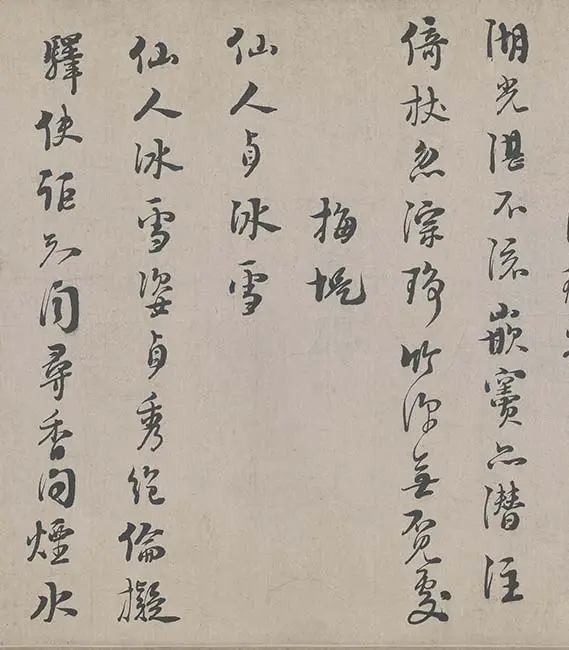 湖光湛不流嵌竇亦潛注
倚杖忽淙琤竹深無覓處
梅堤
仙人貞冰雪
仙人冰雪姿貞秀絕倫擬
驛使詎知聞尋香問煙水